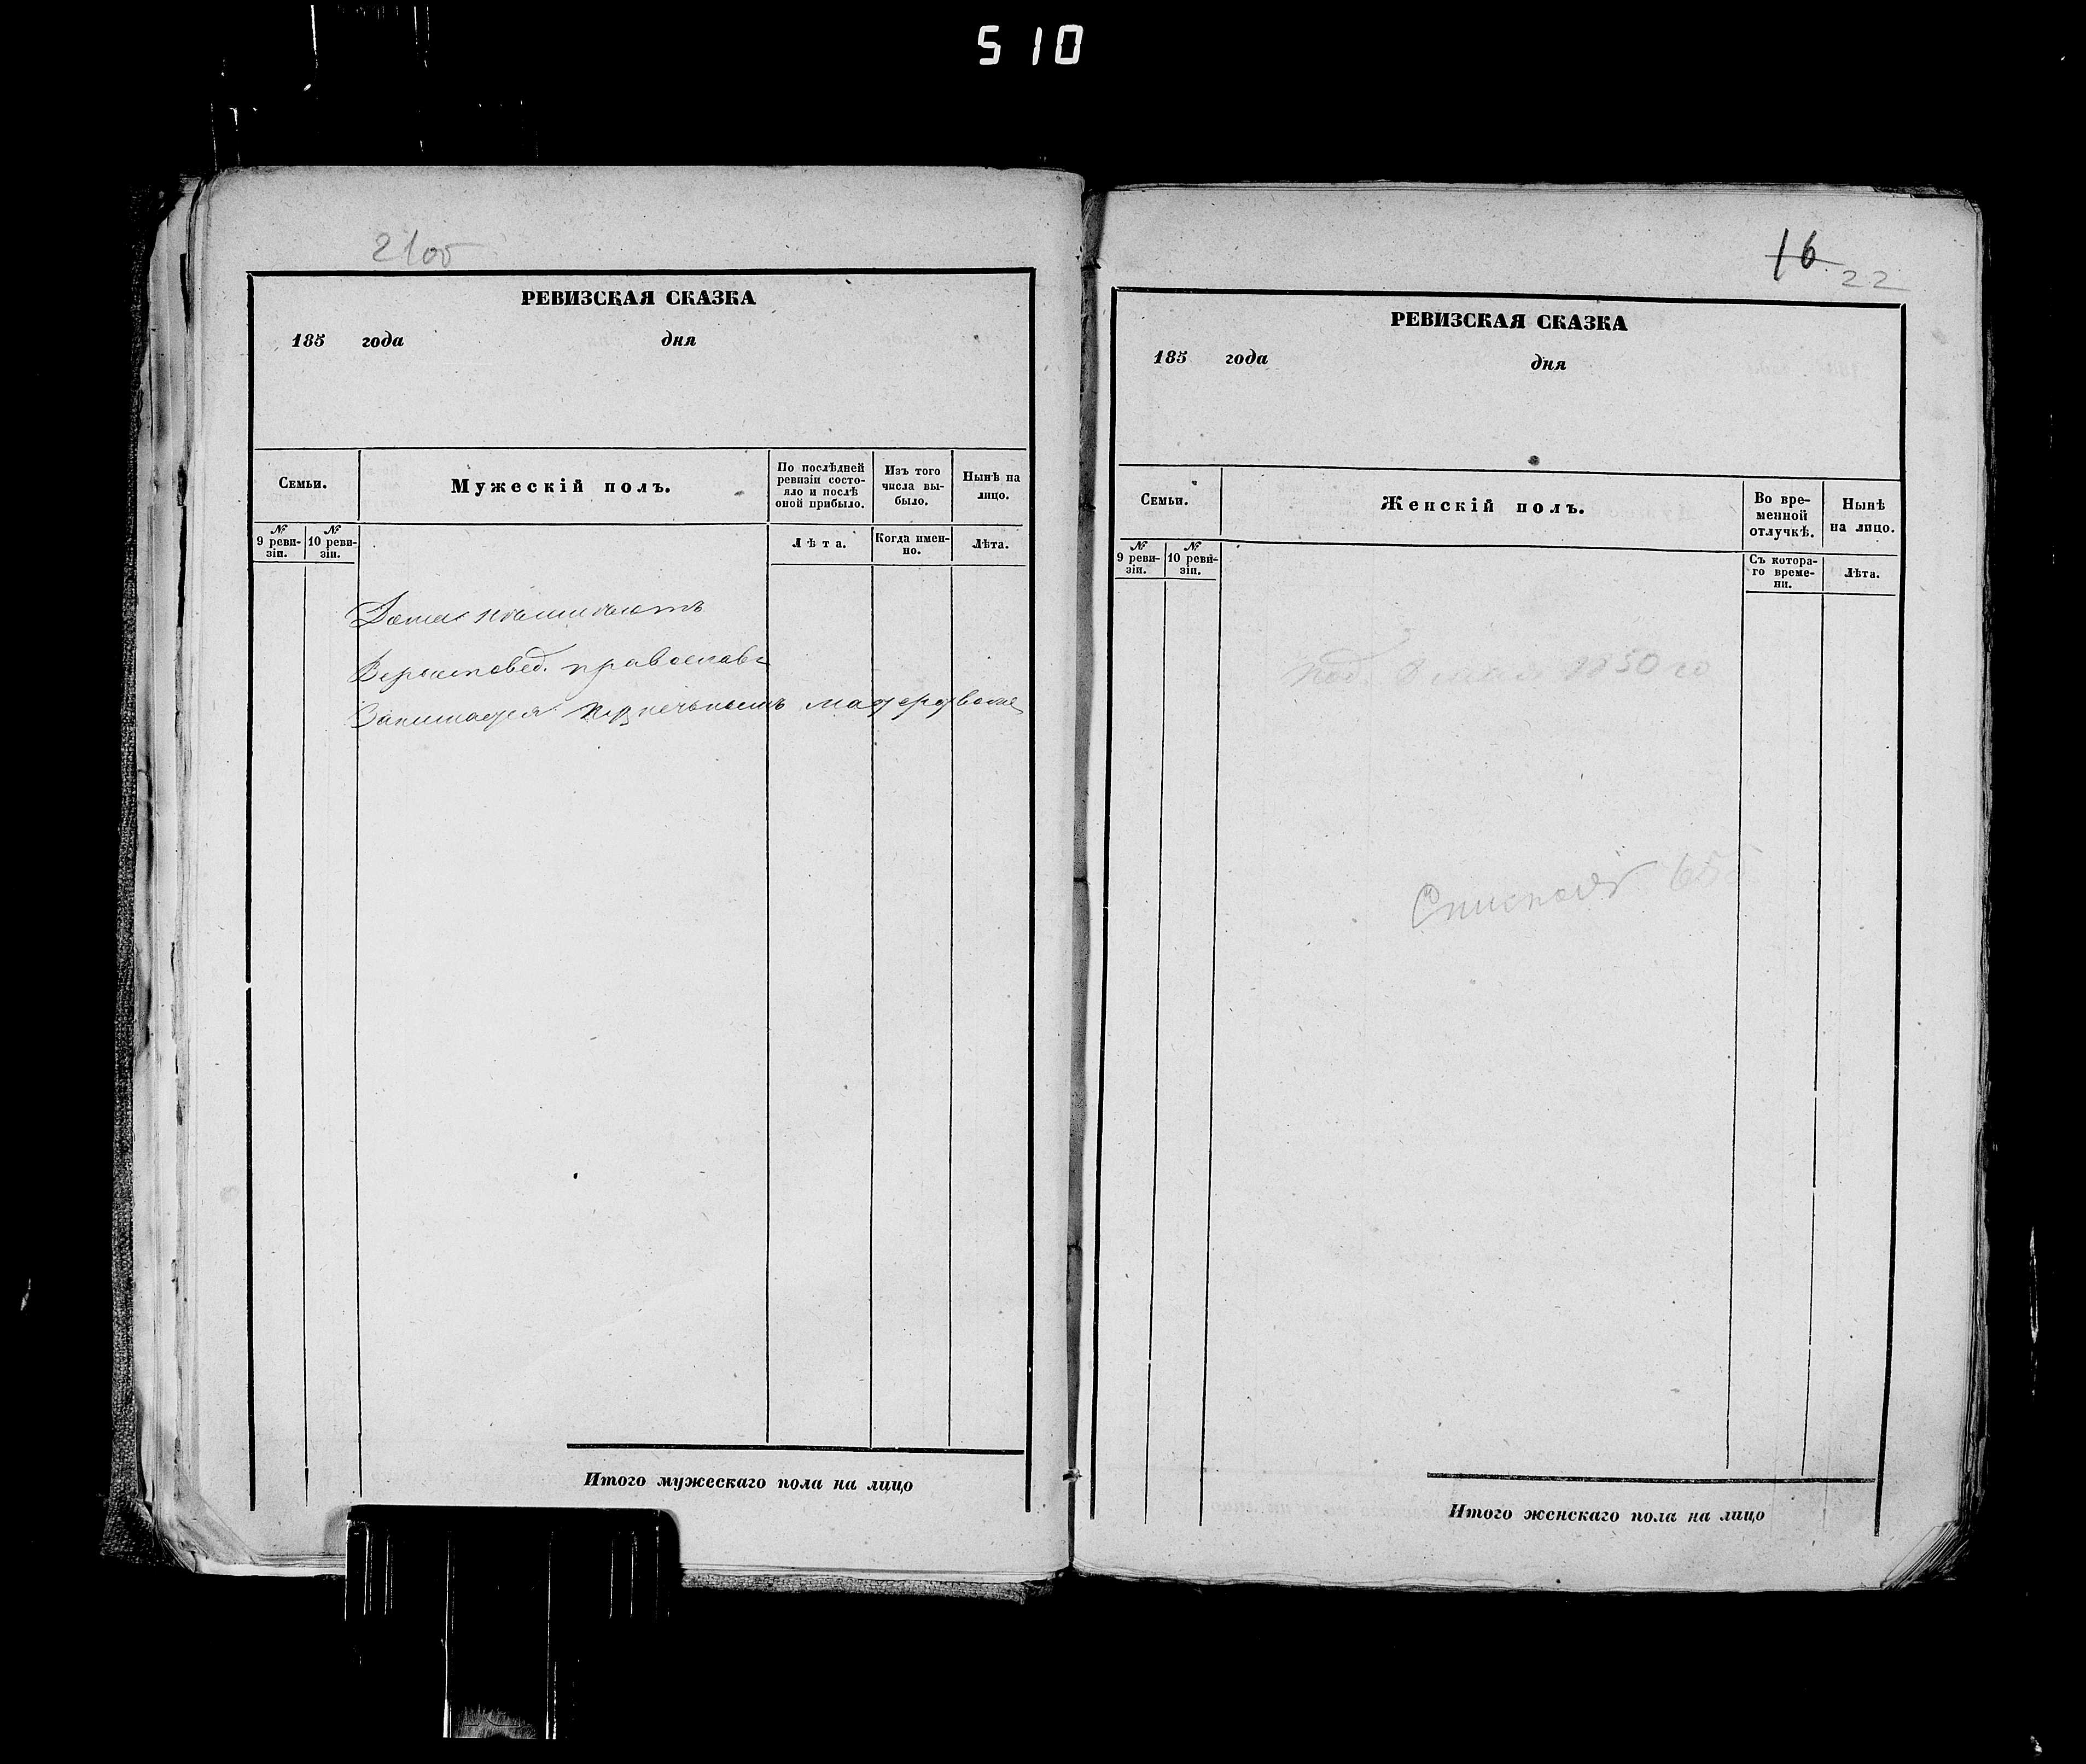 510
2100
РЕВИЗСКАЯ СКАЗКА
185 года дня
Семьи.
Мужескій полъ.
По послѣдней ревизіи состо-
яло и послѣ
оной прибыло.
Изъ того
числа вы-
было.
Нынѣ на
лицо.
№ 9 реви-
зіи.
№ 10 реви-
зіи.
Лѣта.
Когда имен-
но.
Лѣта.
Дома
Вероисповед. православ
Занимается
Итого мужескаго пола на лицо
16 22
РЕВИЗСКАЯ СКАЗКА
185 года дня
Семьи.
Женскій полъ.
Во вре-
менной
отлучкѣ.
Нынѣ
на лицо.
№ 9 реви-
зіи.
№ 10 реви-
зіи.
Съ котора-
го време-
ни.
Лѣта.
1850 го
Итого женскаго пола на лицо